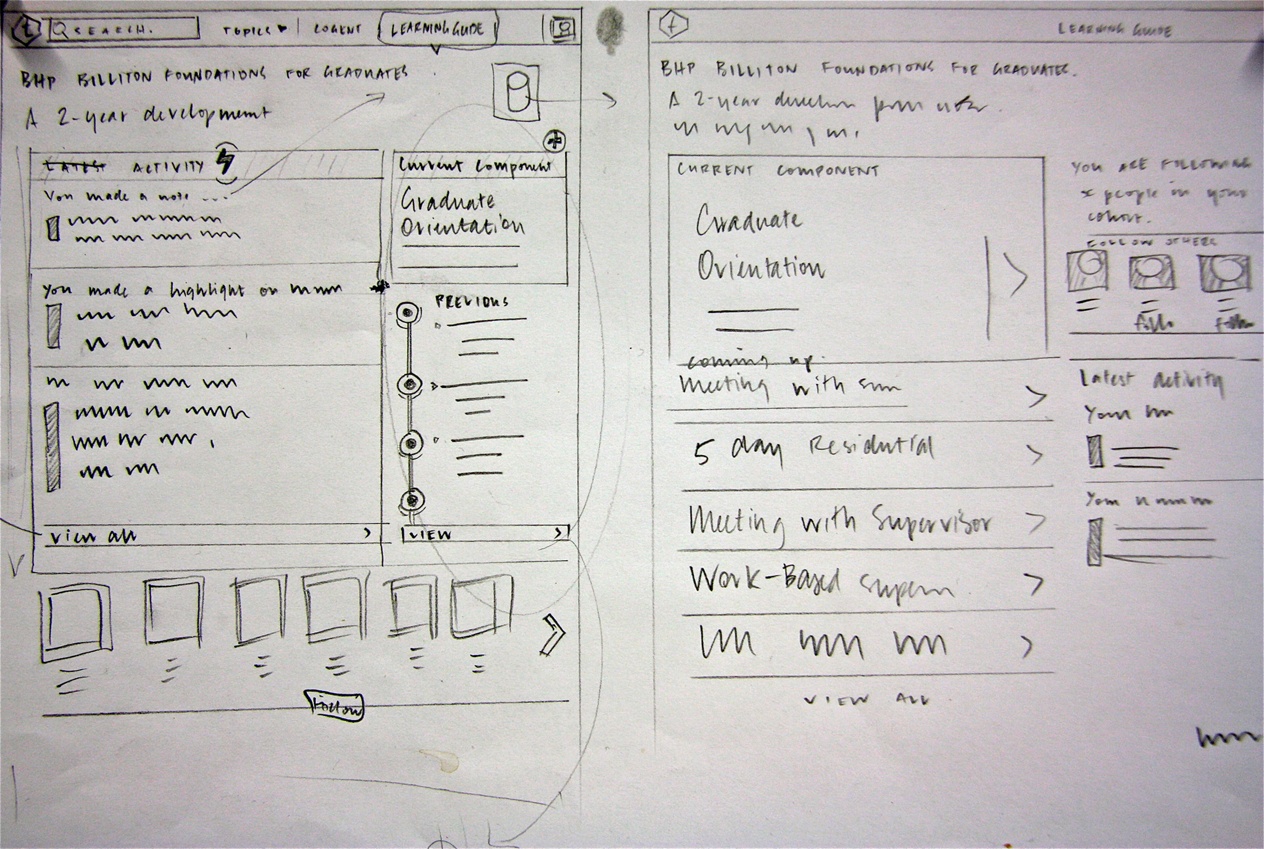 t SEARCH. TOPICS COGENT LEARNING GUIDE
BHP BILLITON FOUNDATIONS FOR GRADUATES
A 2-year development
LATEST ACTIVITY
You made a note ...
You made a highlight on
view all
Current Component
Graduate
Orientation
PREVIOUS
VIEW
Follow
t LEARNING GUIDE
BHP BILLITON FOUNDATIONS FOR GRADUATES.
A 2-year
CURRENT COMPONENT
Graduate
Orientation
coming up
Meeting with
5 day Residential
Meeting with Supervisor
Work-Based
VIEW ALL
YOU ARE FOLLOWING
x people in your
cohort.
FOLLOW OTHERS
Latest activity